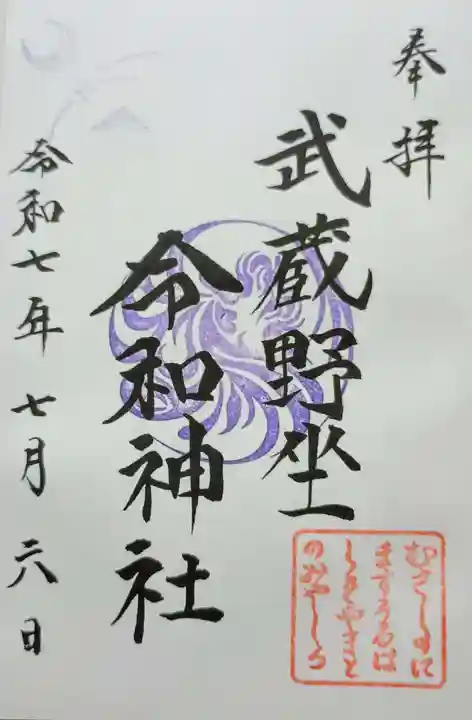 奉拝
武蔵野坐
令和神社
令和七年 七月 六日
むさしのに
ますうるは
しきやまと
のみやしろ